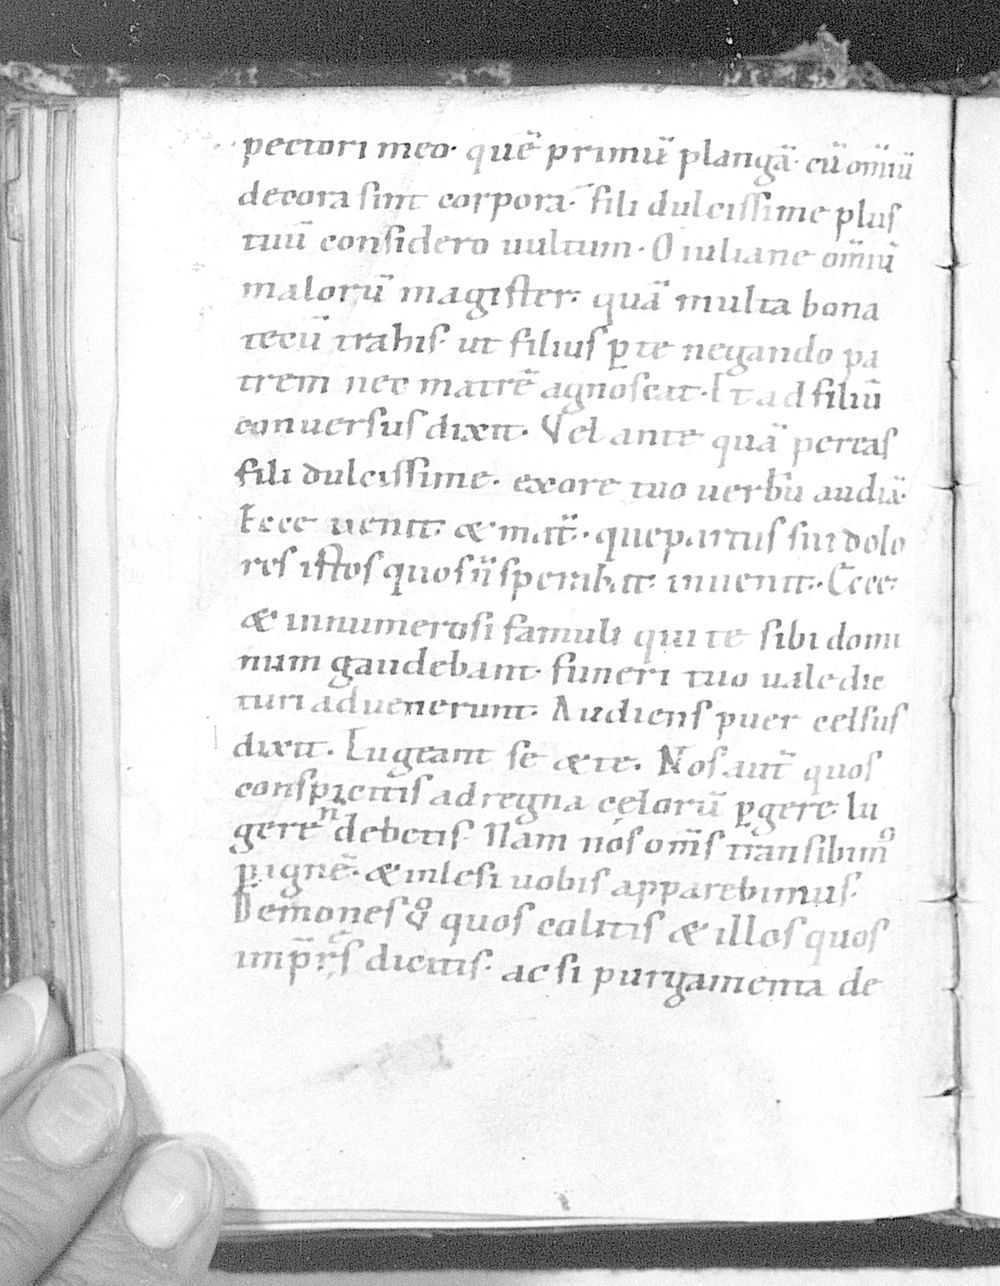 pectori meo· quē primū plangā· cū om̄iū
decora sint corpora· fili dulcissime plus
tuū considero uultum· O iuliane om̄iū
malorū magister· quā multa bona
tecū trahis· ut filius ꝑ te negando pa
trem nec matrē agnoscat· Et ad filiū
conuersus dixit· Vel ante quā pereas
fili dulcissime· ex ore tuo uerbū audiā·
Ecce uenit & mat̄· que partus sui dolo
res istos quos n̄ sperabat inuenit· Ecce
& innumerosi famuli qui te sibi domi
num gaudebant· funeri tuo uale dic
turi aduenerunt· Audiens puer celsus
dixit· Lugeant se & te· Nos aut̄ quos
conspicitis ad regna cęlorū ꝑgere lu
gere n̄ debetis· Nam nos om̄s transibimꝰ
ꝑ ignē· & inlesi uobis apparebimus·
Demones ꝟo quos colitis & illos quos
imp̄r̄s dicitis· ac si purgamenta de